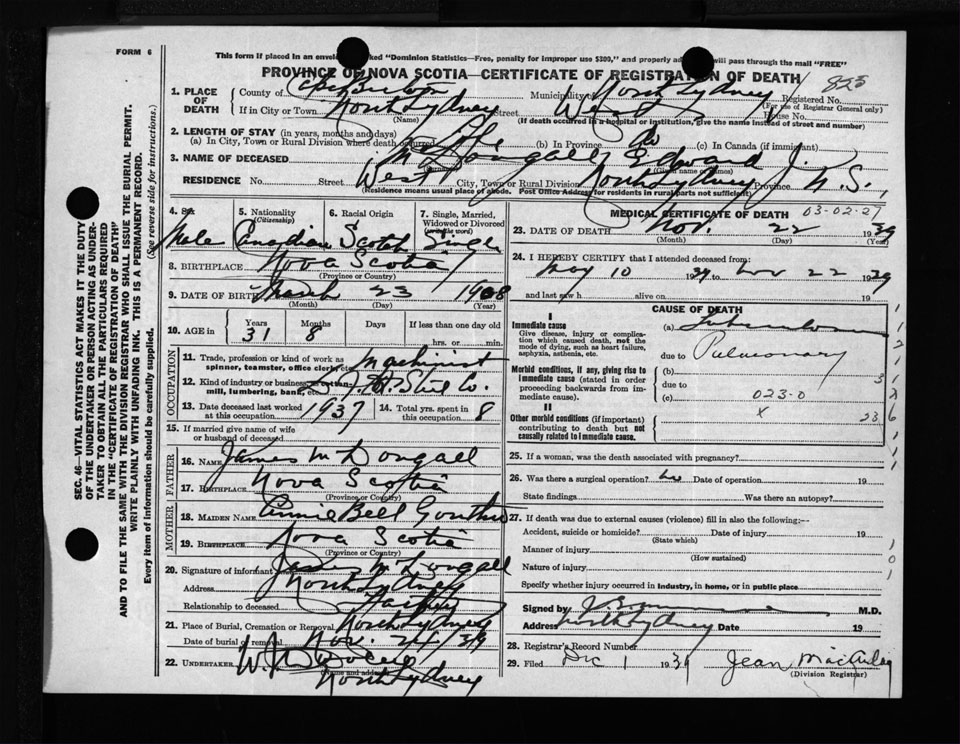 FORM 6
This form if placed in an envelope marked "Dominion Statistics—Free, penalty for improper use $300," and properly addressed will pass through the mail "FREE"
PROVINCE OF NOVA SCOTIA—CERTIFICATE OF REGISTRATION OF DEATH
823
1. PLACE OF DEATH County of Cape Breton Municipality North Sydney Registered No.
(For use of Registrar General only)
If in City or Town North Sydney Street House No.
(Name) (If death occurred in a hospital or institution, give the name instead of street and number)
2. LENGTH OF STAY (in years, months and days)
(a) In City, Town or Rural Division where death occurred (b) In Province (c) In Canada (if immigrant)
3. NAME OF DECEASED McDougall Edward J.
RESIDENCE No. Street West City, Town or Rural Division North Sydney Province N.S.
(Residence means usual place of abode. Post Office Address for residents in rural parts not sufficient)
4. Sex 5. Nationality 6. Racial Origin 7. Single, Married, Widowed or Divorced
(Citizenship) (write the word)
Male Canadian Scotch Single
8. BIRTHPLACE Nova Scotia
(Province or Country)
9. DATE OF BIRTH March 23 1908
(Month) (Day) (Year)
10. AGE in Years Months Days If less than one day old
31 8 hrs. or min.
OCCUPATION
11. Trade, profession or kind of work as spinner, teamster, office clerk, etc. machinist
12. Kind of industry or business, cotton-mill, lumbering, bank, etc. Steel Co.
13. Date deceased last worked at this occupation 1937 14. Total yrs. spent in this occupation 8
15. If married give name of wife or husband of deceased
FATHER
16. Name James McDougall
17. Birthplace Nova Scotia
(Province or Country)
MOTHER
18. Maiden Name Annie Bell
19. Birthplace Nova Scotia
(Province or Country)
20. Signature of informant James McDougall
Address North Sydney
Relationship to deceased Father
21. Place of Burial, Cremation or Removal North Sydney
Date of burial or removal Nov. 24/39
22. Undertaker
Name and address North Sydney
MEDICAL CERTIFICATE OF DEATH
03-02-27
23. DATE OF DEATH Nov. 22 1939
(Month) (Day) (Year)
24. I HEREBY CERTIFY that I attended deceased from:
May 10 1939 to Nov 22 1939
and last saw h alive on 19
CAUSE OF DEATH
I
Immediate cause (a) Tuberculosis
Give disease, injury or complication which caused death, not the mode of dying, such as heart failure, asphyxia, asthenia, etc.
due to Pulmonary
Morbid conditions, if any, giving rise to immediate cause (stated in order proceeding backwards from immediate cause)
(b)
due to
(c) 023-0
II
Other morbid conditions (if important) contributing to death but not causally related to immediate cause.
x
23
25. If a woman, was the death associated with pregnancy?
26. Was there a surgical operation? no Date of operation 19
State findings Was there an autopsy?
27. If death was due to external causes (violence) fill in also the following:—
Accident, suicide or homicide? Date of injury 19
(State which)
Manner of injury
(How sustained)
Nature of injury
Specify whether injury occurred in industry, in home, or in public place
Signed by M.D.
Address North Sydney Date 19
28. Registrar's Record Number
29. Filed Dec 1 1939 Jean
(Division Registrar)
SEC. 46—VITAL STATISTICS ACT MAKES IT THE DUTY
OF THE UNDERTAKER OR PERSON ACTING AS UNDER-
TAKER TO OBTAIN ALL THE PARTICULARS REQUIRED
IN THE "CERTIFICATE OF REGISTRATION OF DEATH"
AND TO FILE THE SAME WITH THE DIVISION REGISTRAR WHO SHALL ISSUE THE BURIAL PERMIT.
WRITE PLAINLY WITH UNFADING INK. THIS IS A PERMANENT RECORD.
Every item of information should be carefully supplied. (See reverse side for instructions.)